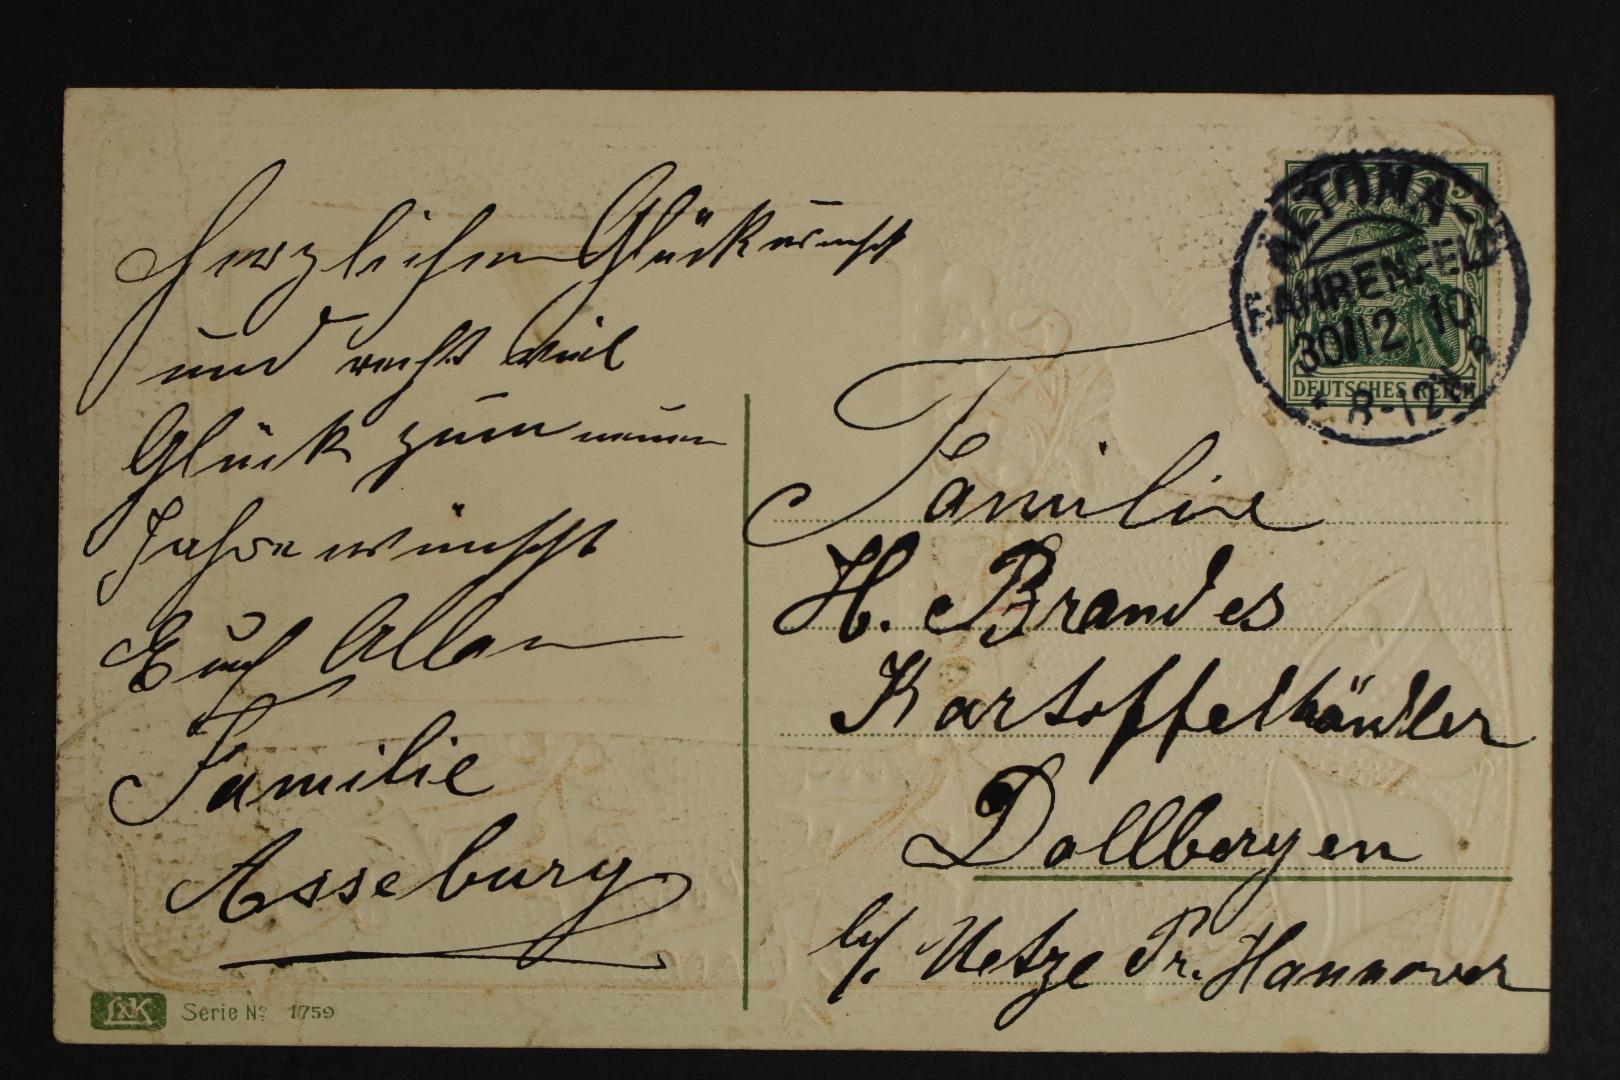 Herzlichen Glückwunsch
und recht viel
Glück zum neuen
Jahre wünscht
Euch Allen
Familie
Asseburg
ALTONA
BAHRENFELD
30/12.10
8-12N
DEUTSCHES REICH
Familie
H. Brandes
Kartoffelhändler
Dollbergen
b/. Uetze Pr. Hannover
Serie No. 1759